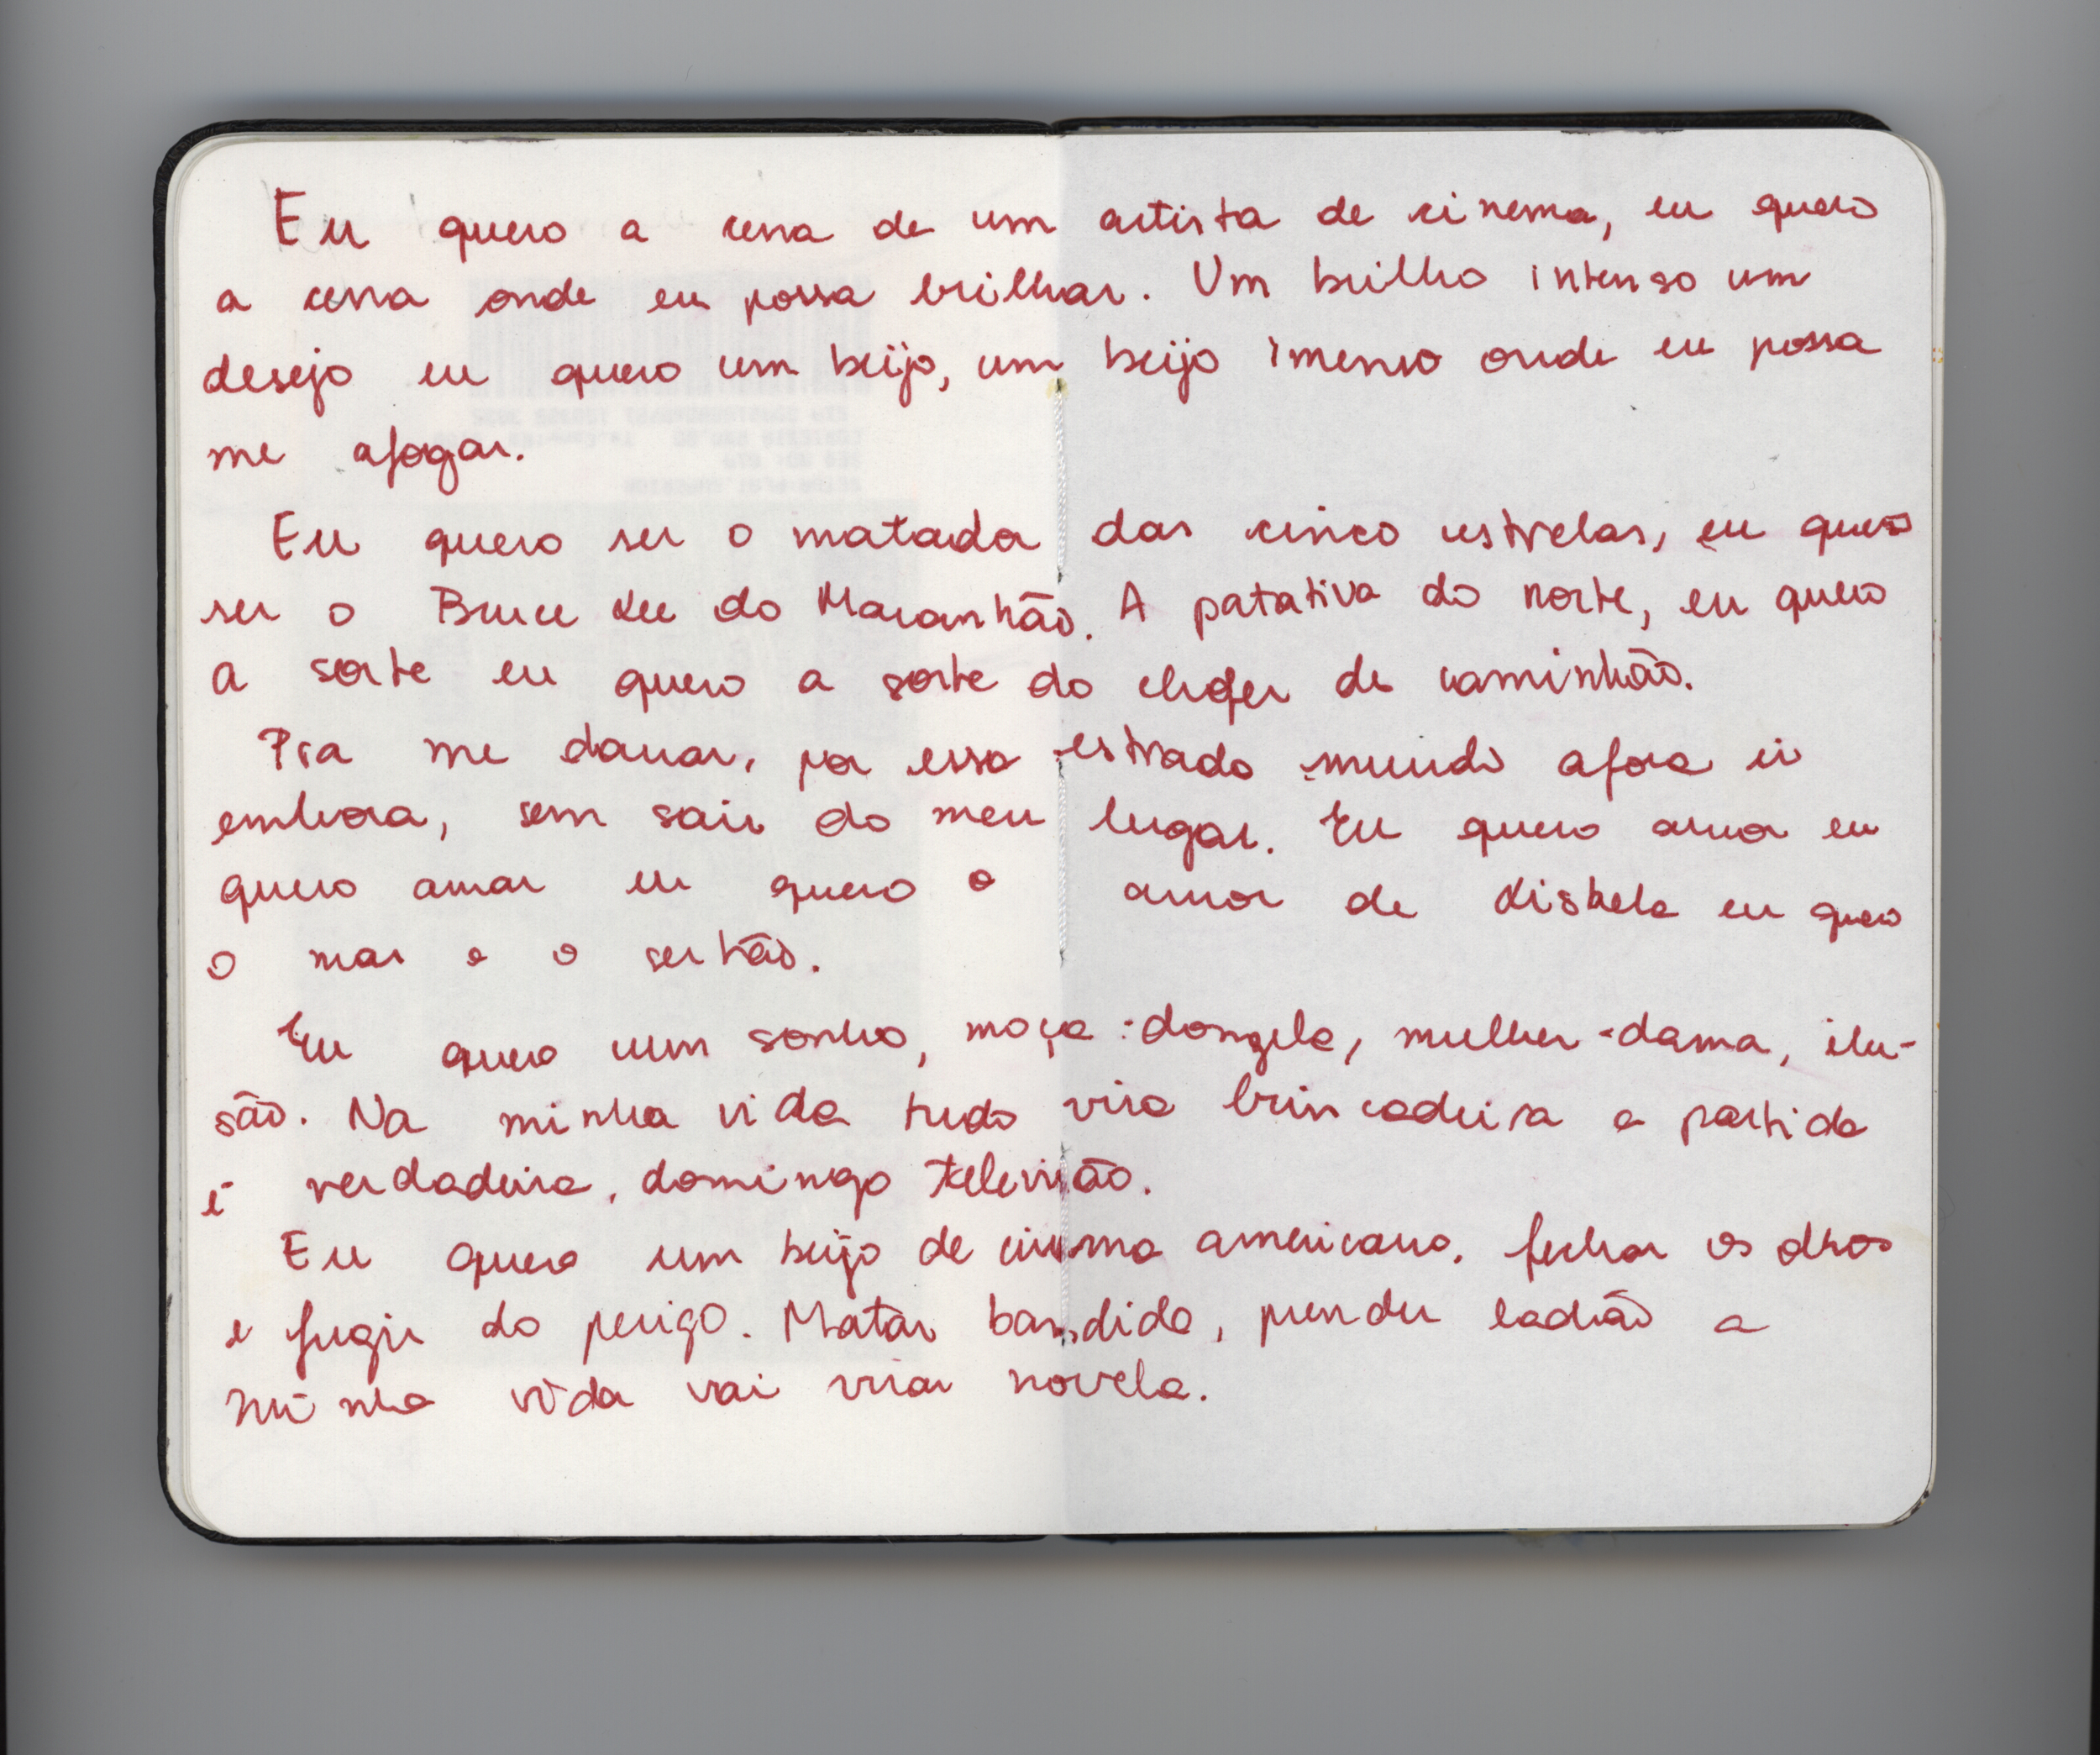 Eu quero a cena de um artista de cinema, eu quero
a cena onde eu possa brilhar. Um brilho intenso um
desejo eu quero um beijo, um beijo imenso onde eu possa
me afogar.
Eu quero ser o matador das cinco estrelas, eu quero
ser o Bruce Lee do Maranhão. A patativa do norte, eu quero
a sorte eu quero a sorte do chofer de caminhão.
Pra me danar, por essa estrada mundo afora ir
embora, sem sair do meu lugar. Eu quero amor eu
quero amar eu quero o amor de Lisbela eu quero
o mar e o sertão.
Eu quero um sonho, moça-donzela, mulher-dama, ilu-
são. Na minha vida tudo vira brincadeira a partida
é verdadeira, domingo televisão.
Eu quero um beijo de cinema americano. fechar os olhos
e fugir do perigo. Matar bandido, prender ladrão a
minha vida vai virar novela.